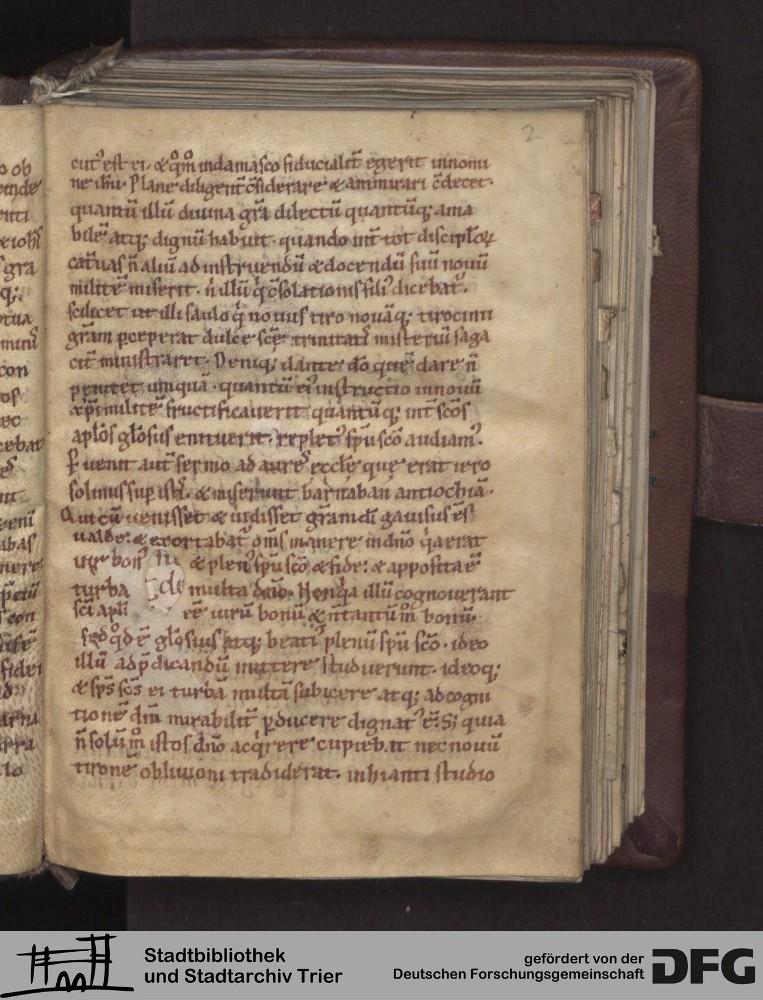 2
cut᷒ est ei. & qm̊ in damasco fiducialit̄ egerit in nomi
ne ih̄u. Plane diligent̄ c̄siderare & ammirari c̄decet.
quantū illū diuina gr̄a dilectū quantūq; ama
bilē atq; dignū habuit. quando int̄ tot discipl̄oꝝ
cat̄uas n̄ aliū ad instruendū & docendū suū nouū
militē miserit. n̄ illū q̇ c̄solationis fili᷒ dicebat᷒.
scilicet ut illi saulo q̇ nouus tiro nouāq; tirocinii
gr̄am ꝑceperat dulce sc̄e trinitat᷒ misteriū saga
cit̄ ministraret. Deniq; dante dō quē dare n̄
penitet umquā. quantū ei᷒ instructio in nouū
xp̄i militē fructificauerit. quantūq; int̄ sc̄os
ap̄los gl̄osus enituerit. replet᷒ sp̄u sc̄o audiam᷒.
P̱uenit aut̄ sermo ad aurē eccl̄e que erat iero
solimis sup istis᷒. & miserunt barnaban antiochiā.
Qui cū uenisset & uidisset gr̄am dī gauisus ē
ualde: & exortabat᷒ om̄s manere in dn̄o q̇a erat
uir bon᷒ & plen᷒ sp̄u sc̄o & fide: & apposita ē
turba multa dn̄o. Hi en̄ q̇a illū cognouerant
sc̄i apl̄i eē uirū bonū & n̄ tantū m̊ bonū.
sed qd̊ ē gl̄osius atq; beati᷒ plenū sp̄u sc̄o. ideo
illū ad p̄dicandū mittere studuerunt. ideoq;
& sp̄s sc̄s ei turbā multā subicere atq; ad cogni
tionē dn̄i mirabilit̄ ꝑducere dignat᷒ ē. S; quia
n̄ solū m̊ istos dn̄o acq̇rere cupiebat nec nouū
tironē obliuioni tradiderat. inhianti studio
Stadtbibliothek
und Stadtarchiv Trier
gefördert von der
Deutschen Forschungsgemeinschaft
DFG